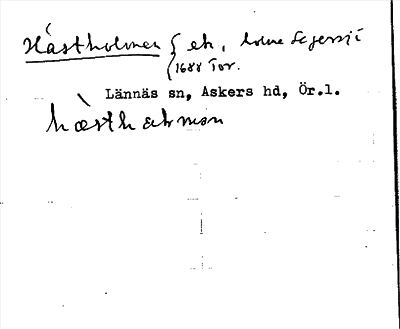 Hästholmen { ek, holme Segersjö
1688 Tor.
Lännäs sn, Askers hd, Ör.l.
hæsthalmən